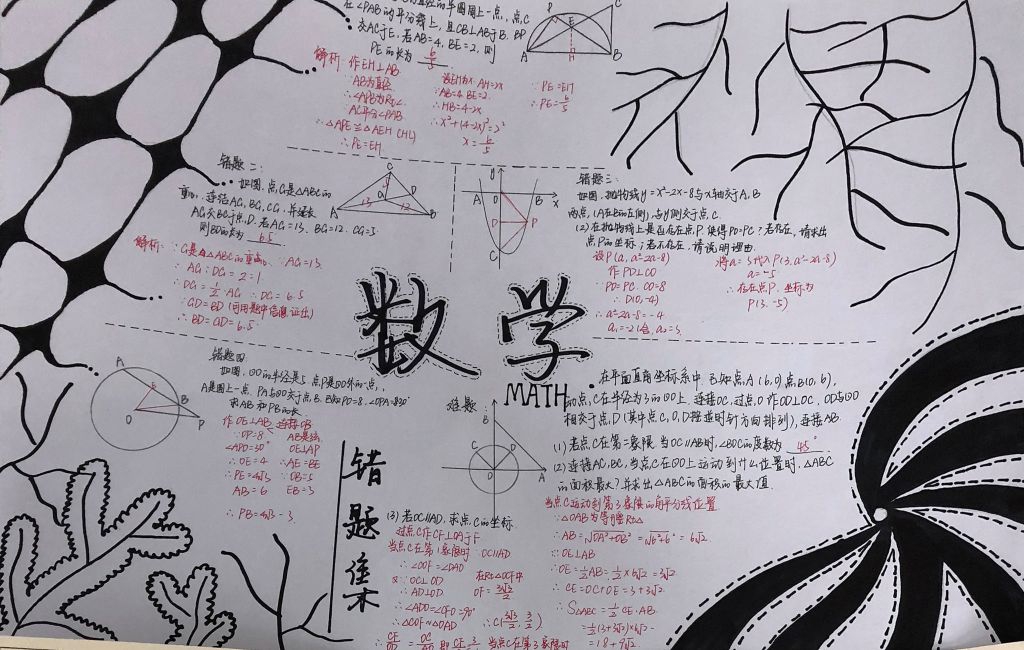 在∠PAB的平分线上，且CB⊥AB于B. BP
交AC于E，若AB=4, BE=2, 则
PE的长为 6/5
P
C
E
A
H
B
解析: 作EH⊥AB
∵AB为直径
∴∠APB为Rt∠
AC平分∠PAB
∴△APE≌△AEH (HL)
∴PE=EH
设EH为x AH=2x
∵AB=4 BE=2
∴HB=4-2x
∴x²+(4-2x)²=2²
x=6/5
∵PE=EH
∴PE=6/5
错题二:
如图, 点G是△ABC的
重心, 连结AG, BG, CG, 并延长
AG交BC于点D. 若AG=13. BG=12. CG=5
则BD的长为 6.5
C
D
G
A
B
5
13
12
解析: ∵G是△ABC的重心, ∵AG=13
∴AG:DG=2:1
∴DG=1/2 AG ∴DG=6.5
∵GD=BD (可用题中信息证出)
∴BD=GD=6.5
A
O
B
x
D
P
C
错题三:
如图, 抛物线y=x²-2x-8与x轴交于A, B
两点, (A在B的左侧), 与y侧交于点C.
(2)在抛物线上是否存在点P. 使得PO=PC; 若存在, 请求出
点P的坐标; 若不存在, 请说明理由.
设P(a, a²-2a-8)
作PD⊥CO
∵PO=PC. OC=8
∴D(0,-4)
∴a²-2a-8=-4
将a=3代入P(3, a²-2a-8)
a=-5
∴存在点P. 坐标为
P(3. -5)
数学
MATH
错题四:
如图, ⊙O的半径是5. 点P是⊙O外的一点,
A是圆上一点. PA与⊙O交于点B. 已知PO=8, ∠OPA=30°
求AB和PB的长.
A
E
B
O
P
作OE⊥AB 连接OB
∵OP=8
∠APO=30°
∴OE=4
∴PE=4√3
AB=6
AB是弦
OE⊥AP
∴AE=BE
∵OB=5
EB=3
∴PB=4√3-3
错题集
难题:
B
C
D
O
A
在平面直角坐标系中. 已知点A(6,0), 点B(0,6),
动点C在半径为3的⊙O上, 连接OC, 过点O作OD⊥OC, OD与⊙O
相交于点D (其中点C, O, D按逆时针方向排列), 连接AB.
(1) 若点C在第二象限. 当OC∥AB时, ∠BOC的度数为 45°
(2) 连接AC, BC, 当点C在⊙O上运动到什么位置时, △ABC
的面积最大? 并求出△ABC的面积的最大值.
当点C运动到第3象限的角平分线位置
∵△OAB为等腰Rt△
∴AB=√OA²+OB²=√6²+6²=6√2
∵OE⊥AB
∴OE=1/2AB=1/2×6√2=3√2
∴CE=OC+OE=3+3√2
∴S△ABC=1/2 CE·AB
=1/2(3+3√2)×6√2
=18+9√2
(3) 若OC∥AD, 求点C的坐标
过点C作CF⊥OA于F
当点C在第1象限时 ∵OC∥AD
∴∠COF=∠DAO
又∵OC⊥OD
∴AD⊥OD
∴∠ADO=∠CFO=90°
∴△COF∽△OAD
在Rt△OCF中
OF=3√3/2
∴C(3√3/2, 3/2)
当点C在第3象限时